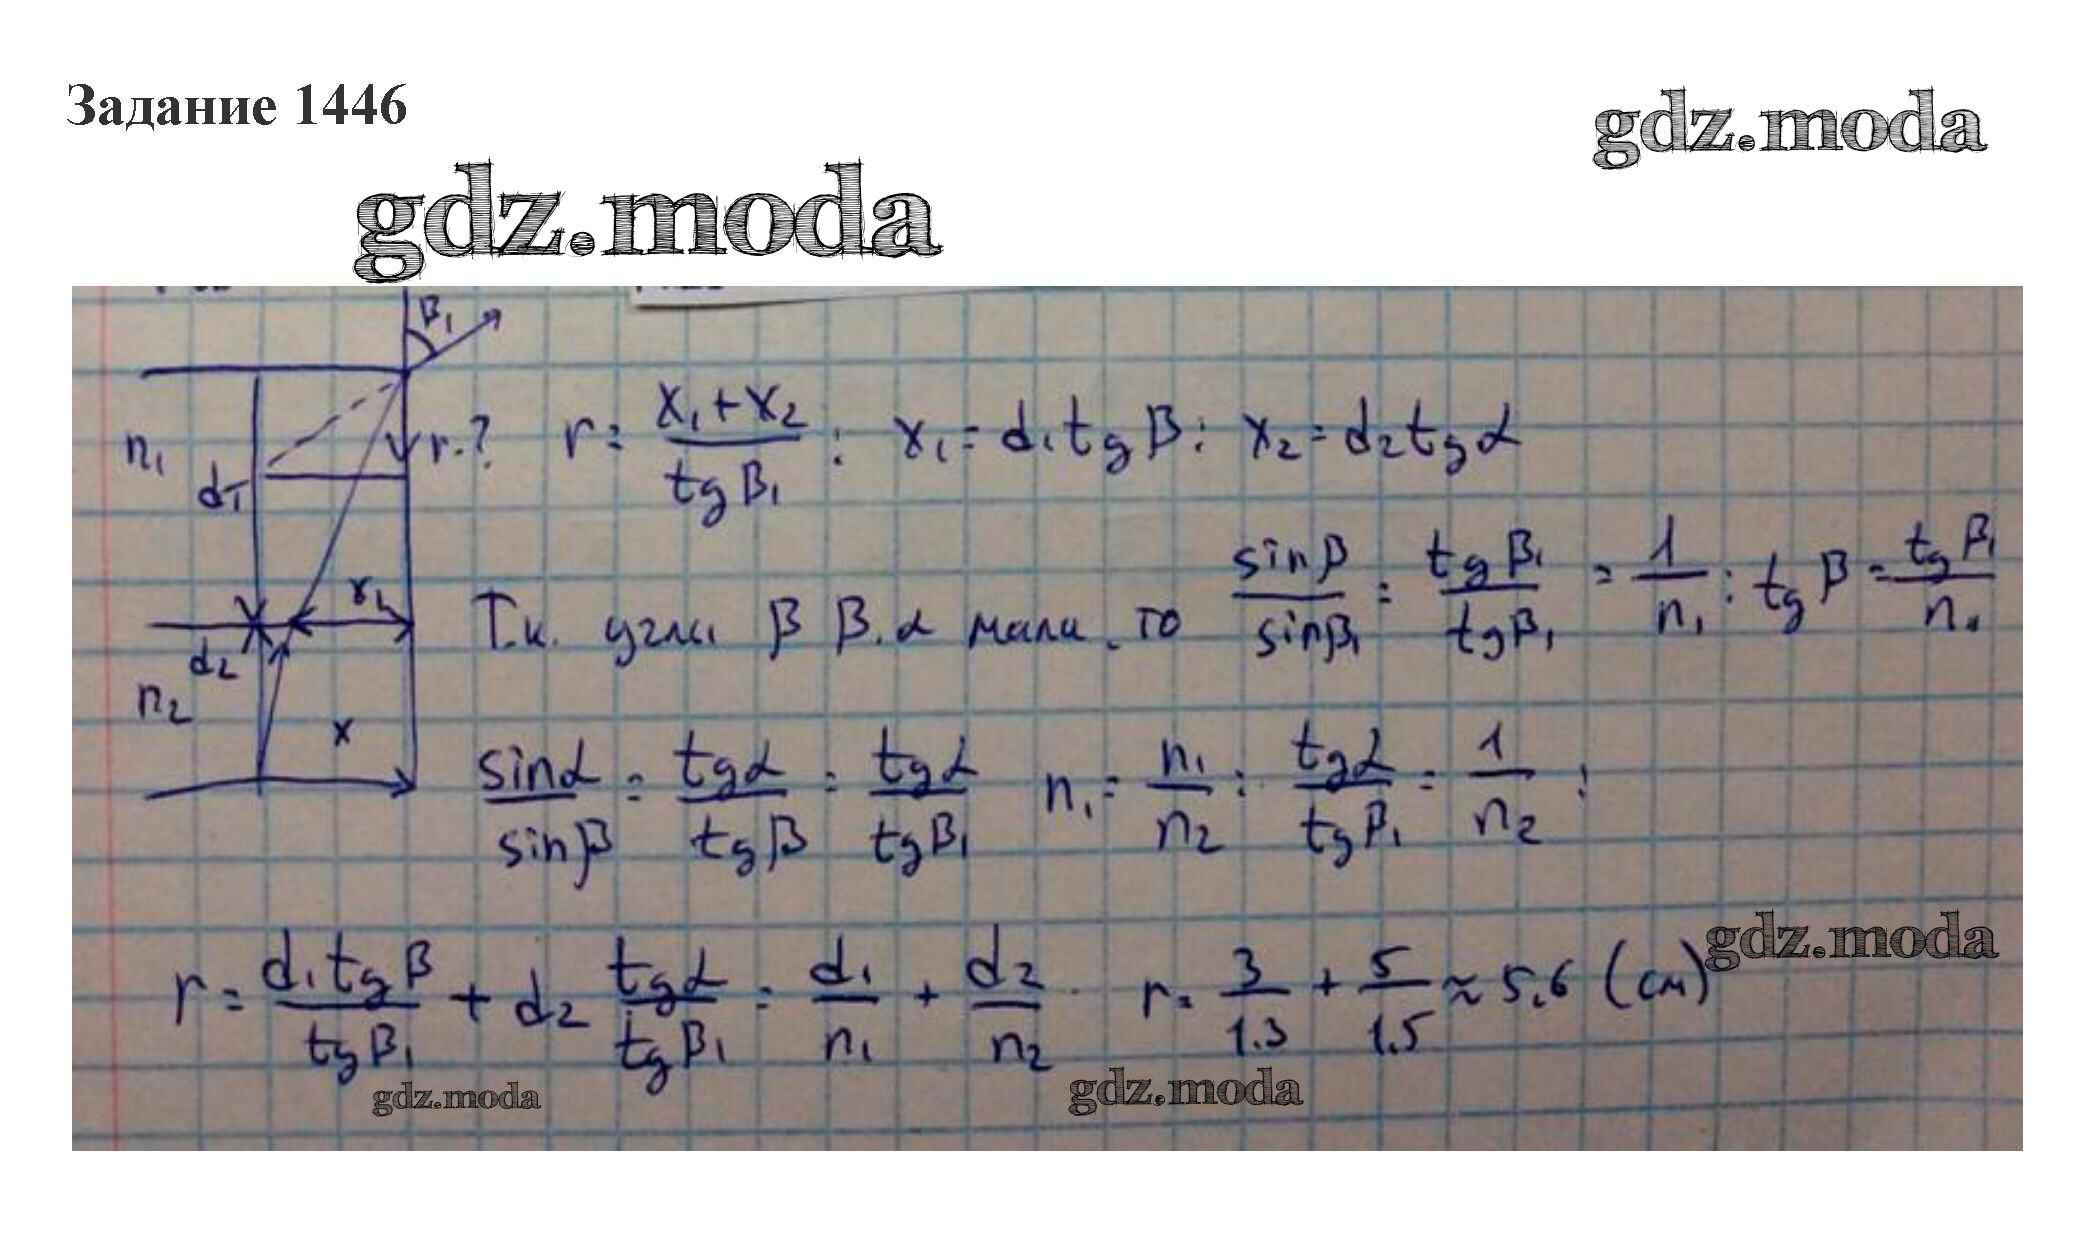 Задание 1446
gdz.moda
gdz.moda
β₁
n₁
d₁
r.?
r = (x₁ + x₂) / tgβ₁ ; x₁ = d₁tgβ ; x₂ = d₂tgα
x₁
Т.к. углы β β₁ α малы, то sinβ / sinβ₁ = tgβ₁ / tgβ₁ = 1 / n₁ ; tgβ = tgβ₁ / n₁
d₂
n₂
x
sinα / sinβ = tgα / tgβ = tgα / tgβ₁ n₁ = n₁ / n₂ ; tgα / tgβ₁ = 1 / n₂ ;
gdz.moda
r = d₁tgβ / tgβ₁ + d₂ tgα / tgβ₁ = d₁ / n₁ + d₂ / n₂ . r = 3 / 1.3 + 5 / 1.5 ≈ 5.6 (см)
gdz.moda
gdz.moda